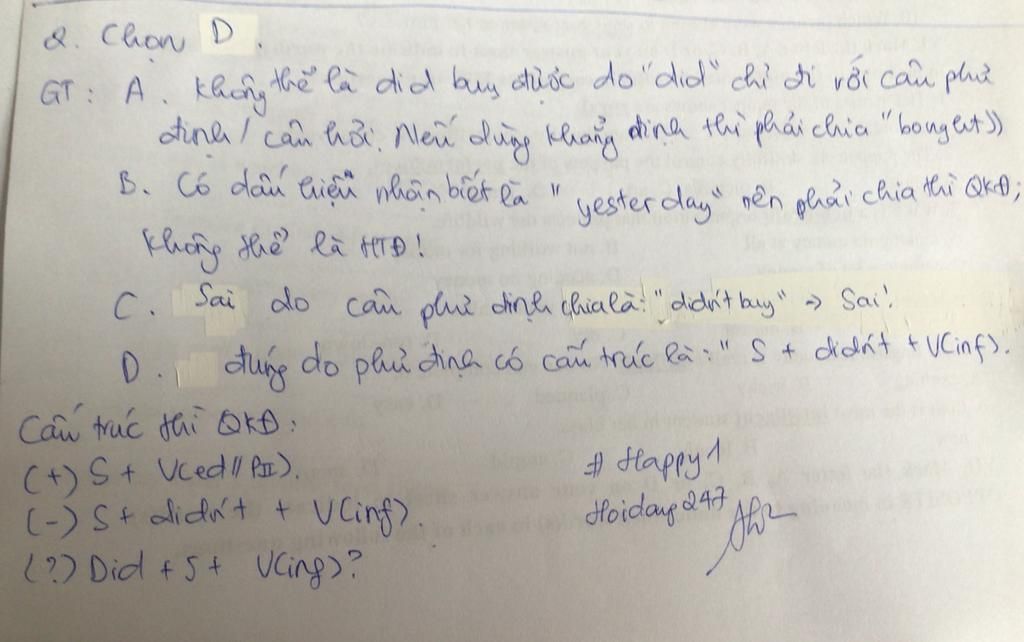 2. Chọn D.
GT: A. Không thể là did buy được do "did" chỉ đi với câu phủ
định / câu hỏi. Nếu dùng khẳng định thì phải chia "bought"
B. Có dấu hiệu nhận biết là "yesterday" nên phải chia thì QKĐ;
không thể là HTĐ!
C. Sai do câu phủ định chia là: "didn't buy" → Sai!
D. đúng do phủ định có cấu trúc là: " S + didn't + V(inf).
Cấu trúc thì QKĐ:
(+) S + V(ed/PII).
(-) S + didn't + V(inf).
(?) Did + S + V(inf)?
# Happy1
Hoidap247